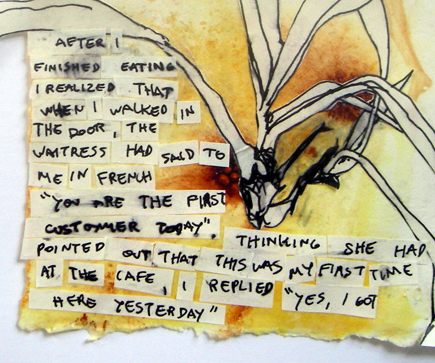 AFTER I
FINISHED EATING
I REALIZED THAT
WHEN I WALKED IN
THE DOOR, THE
WAITRESS HAD SAID TO
ME IN FRENCH
"YOU ARE THE FIRST
CUSTOMER TODAY",
THINKING SHE HAD
POINTED OUT THAT THIS WAS MY FIRST TIME
AT THE CAFE, I REPLIED "YES, I GOT
HERE YESTERDAY"